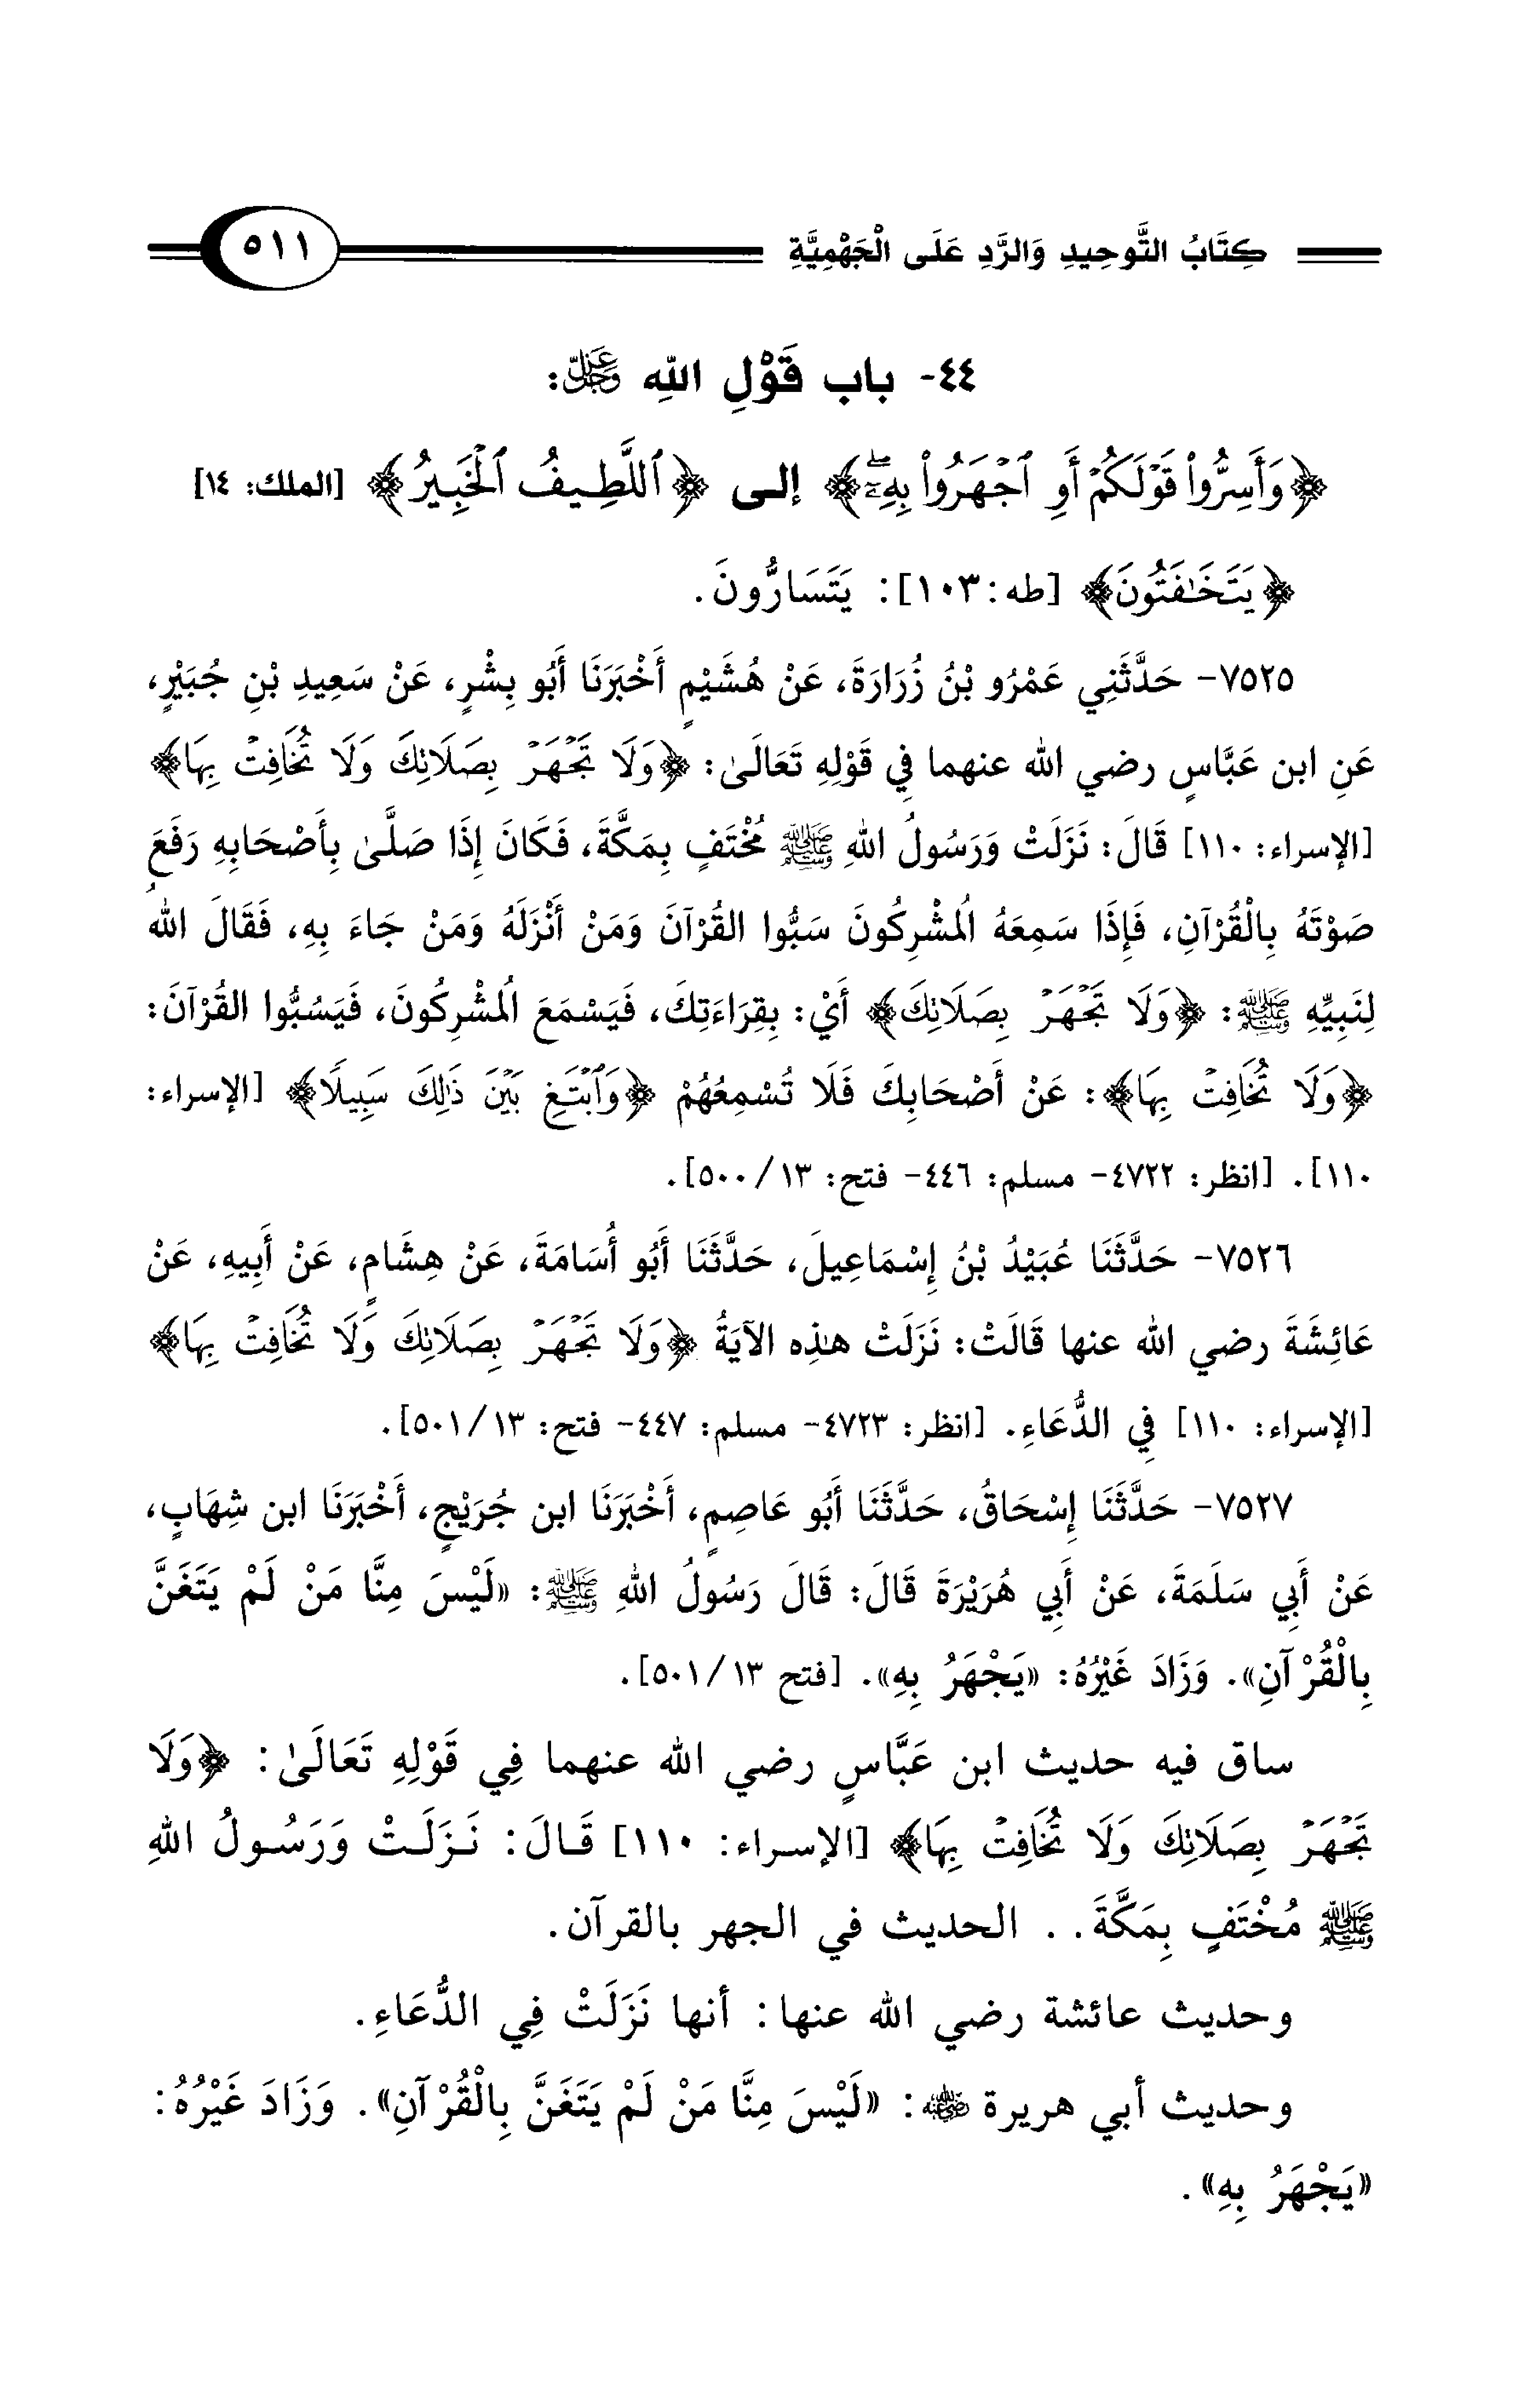 كِتَابُ التَّوحِيدِ وَالرَّدِ عَلَى الْجَهْمِيَّةِ ٥١١
٤٤- باب قَوْلِ اللهِ عَزَّ وَجَلَّ:
﴿وَأَسِرُّواْ قَوۡلَكُمۡ أَوِ ٱجۡهَرُواْ بِهِۦٓۖ﴾ إلى ﴿ٱللَّطِيفُ ٱلۡخَبِيرُ﴾ [الملك: ١٤]
﴿يَتَخَٰفَتُونَ﴾ [طه: ١٠٣]: يَتَسَارُّونَ.
٧٥٢٥- حَدَّثَنِي عَمْرُو بْنُ زُرَارَةَ، عَنْ هُشَيْمٍ أَخْبَرَنَا أَبُو بِشْرٍ، عَنْ سَعِيدِ بْنِ جُبَيْرٍ،
عَنِ ابن عَبَّاسٍ رضي الله عنهما فِي قَوْلِهِ تَعَالَىٰ: ﴿وَلَا تَجۡهَرۡ بِصَلَاتِكَ وَلَا تُخَافِتۡ بِهَا﴾
[الإسراء: ١١٠] قَالَ: نَزَلَتْ وَرَسُولُ اللهِ ﷺ مُخْتَفٍ بِمَكَّةَ، فَكَانَ إِذَا صَلَّىٰ بِأَصْحَابِهِ رَفَعَ
صَوْتَهُ بِالْقُرْآنِ، فَإِذَا سَمِعَهُ الُمشْرِكُونَ سَبُّوا القُرْآنَ وَمَنْ أَنْزَلَهُ وَمَنْ جَاءَ بِهِ، فَقَالَ اللهُ
لِنَبِيِّهِ ﷺ: ﴿وَلَا تَجۡهَرۡ بِصَلَاتِكَ﴾ أَيْ: بِقِرَاءَتِكَ، فَيَسْمَعَ الُمشْرِكُونَ، فَيَسُبُّوا القُرْآنَ:
﴿وَلَا تُخَافِتۡ بِهَا﴾: عَنْ أَصْحَابِكَ فَلَا تُسْمِعُهُمْ ﴿وَٱبۡتَغِ بَيۡنَ ذَٰلِكَ سَبِيلًا﴾ [الإسراء:
١١٠]. [انظر: ٤٧٢٢- مسلم: ٤٤٦- فتح: ١٣/ ٥٠٠].
٧٥٢٦- حَدَّثَنَا عُبَيْدُ بْنُ إِسْمَاعِيلَ، حَدَّثَنَا أَبُو أُسَامَةَ، عَنْ هِشَامٍ، عَنْ أَبِيهِ، عَنْ
عَائِشَةَ رضي الله عنها قَالَتْ: نَزَلَتْ هذِه الآيَةُ ﴿وَلَا تَجۡهَرۡ بِصَلَاتِكَ وَلَا تُخَافِتۡ بِهَا﴾
[الإسراء: ١١٠] فِي الدُّعَاءِ. [انظر: ٤٧٢٣- مسلم: ٤٤٧- فتح: ١٣/ ٥٠١].
٧٥٢٧- حَدَّثَنَا إِسْحَاقُ، حَدَّثَنَا أَبُو عَاصِمٍ، أَخْبَرَنَا ابن جُرَيْجٍ، أَخْبَرَنَا ابن شِهَابٍ،
عَنْ أَبِي سَلَمَةَ، عَنْ أَبِي هُرَيْرَةَ قَالَ: قَالَ رَسُولُ اللهِ ﷺ: «لَيْسَ مِنَّا مَنْ لَمْ يَتَغَنَّ
بِالْقُرْآنِ». وَزَادَ غَيْرُهُ: «يَجْهَرُ بِهِ». [فتح ١٣/ ٥٠١].
ساق فيه حديث ابن عَبَّاسٍ رضي الله عنهما فِي قَوْلِهِ تَعَالَىٰ: ﴿وَلَا
تَجۡهَرۡ بِصَلَاتِكَ وَلَا تُخَافِتۡ بِهَا﴾ [الإسراء: ١١٠] قَالَ: نَزَلَتْ وَرَسُولُ اللهِ
ﷺ مُخْتَفٍ بِمَكَّةَ. . الحديث في الجهر بالقرآن.
وحديث عائشة رضي الله عنها: أنها نَزَلَتْ فِي الدُّعَاءِ.
وحديث أبي هريرة رضي الله عنه: «لَيْسَ مِنَّا مَنْ لَمْ يَتَغَنَّ بِالْقُرْآنِ». وَزَادَ غَيْرُهُ:
«يَجْهَرُ بِهِ».